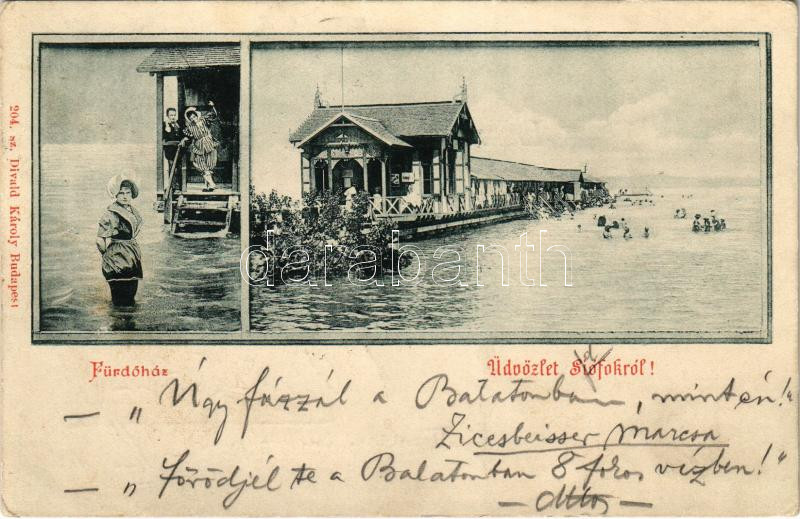 204. sz. Divald Károly Budapest
darabanth
Fürdőház
Üdvözlet Siófokról!
— „Úgy fázzál a Balatonban, mint én!"
Zicesbeisser Marcsa
— „Fürödjél te a Balatonban 8 fokos vízben!"